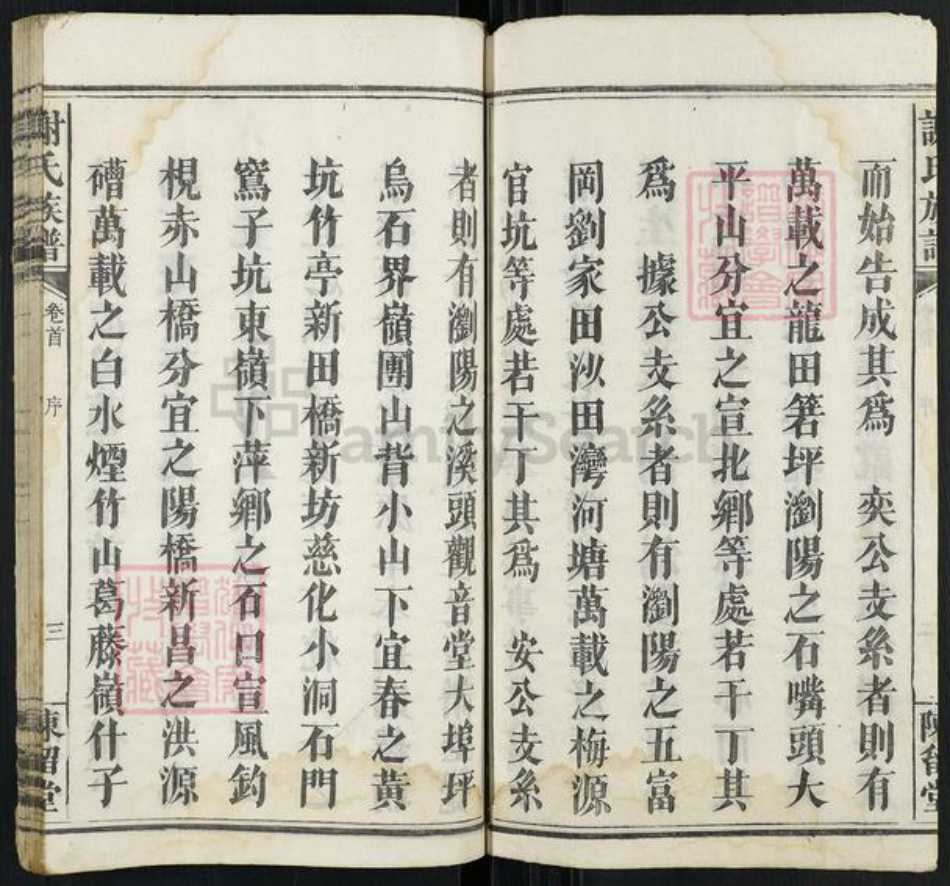 而始告成其爲　奕公支系者則有
萬載之龍田箬坪瀏陽之石嘴頭大
平山分宜之宣北鄉等處若干丁其
爲　據公支系者則有瀏陽之五富
岡劉家田沙田灣河塘萬載之梅源
官坑等處若干丁其爲　安公支系
者則有瀏陽之溪頭觀音堂大埠坪
烏石界嶺團山背小山下宜春之黃
坑竹亭新田橋新坊慈化小洞石門
窩子坑東嶺下萍鄉之石口宣風鈞
梘赤山橋分宜之陽橋新昌之洪源
磳萬載之白水煙竹山葛藤嶺什子
謝氏族譜
卷首
序
三
陳留堂
FamilySearch